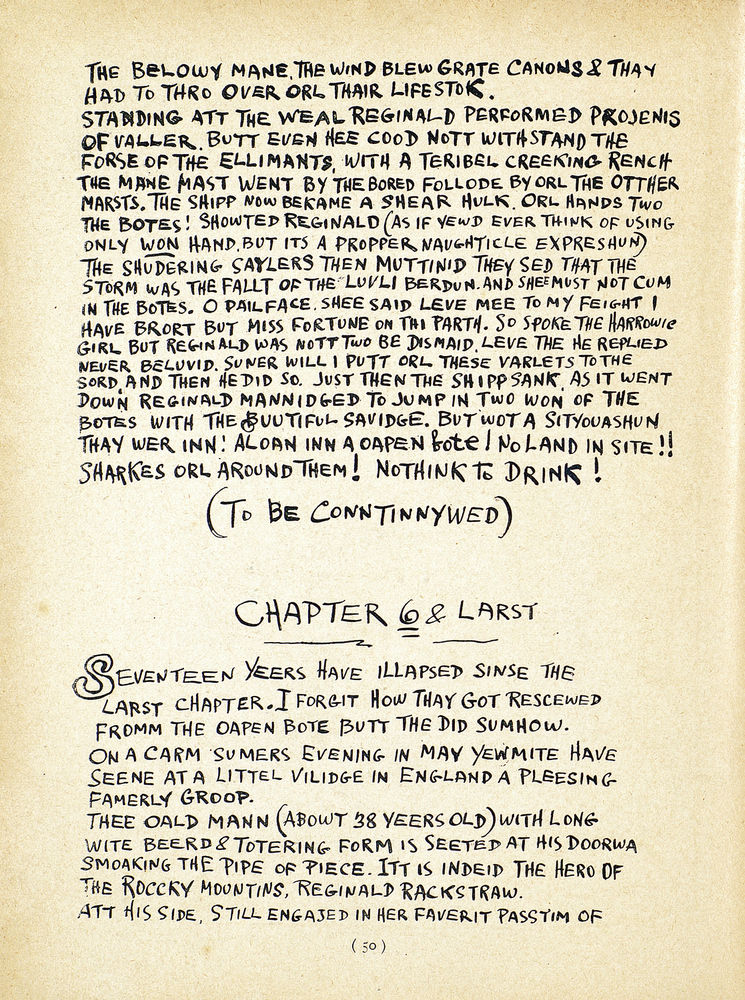 THE BELOWY MANE, THE WIND BLEW GRATE CANONS & THAY
HAD TO THRO OVER ORL THAIR LIFESTOK.
STANDING ATT THE WEAL REGINALD PERFORMED PROJENIS
OF VALLER. BUTT EVEN HEE COOD NOTT WITHSTAND THE
FORSE OF THE ELLIMANTS, WITH A TERIBEL CREEKING RENCH
THE MANE MAST WENT BY THE BORED FOLLODE BY ORL THE OTTHER
MARSTS. THE SHIPP NOW BEKAME A SHEAR HULK. ORL HANDS TWO
THE BOTES! SHOWTED REGINALD (AS IF YEWD EVER THINK OF USING
ONLY WON HAND, BUT ITS A PROPPER NAUGHTICLE EXPRESHUN)
THE SHUDERING SAYLERS THEN MUTTINID THEY SED THAT THE
STORM WAS THE FALLT OF THE LUVLI BERDUN. AND SHEE MUST NOT CUM
IN THE BOTES. O PAILFACE. SHEE SAID LEVE MEE TO MY FEIGHT I
HAVE BRORT BUT MISS FORTUNE ON THI PARTH. SO SPOKE THE HARROWIE
GIRL BUT REGINALD WAS NOTT TWO BE DISMAID. LEVE THE HE REPLIED
NEVER BELUVID. SUNER WILL I PUTT ORL THESE VARLETS TO THE
SORD, AND THEN HE DID SO. JUST THEN THE SHIPP SANK, AS IT WENT
DOWN REGINALD MANNIDGED TO JUMP IN TWO WON OF THE
BOTES WITH THE BUUTIFUL SAVIDGE. BUT WOT A SITYOUASHUN
THAY WER INN! ALOAN INN A OAPEN bote! NO LAND IN SITE!!
SHARKES ORL AROUND THEM! NOTHINK to DRINK!
(TO BE CONNTINNYWED)
CHAPTER 6 & LARST
SEVENTEEN YEERS HAVE ILLAPSED SINSE THE
LARST CHAPTER. I FORGIT HOW THAY GOT RESCEWED
FROMM THE OAPEN BOTE BUTT THE DID SUMHOW.
ON A CARM SUMERS EVENING IN MAY YEWMITE HAVE
SEENE AT A LITTEL VILIDGE IN ENGLAND A PLEESING
FAMERLY GROOP.
THEE OALD MANN (ABOWT 38 YEERS OLD) WITH LONG
WITE BEERD & TOTERING FORM IS SEETED AT HIS DOORWA
SMOAKING THE PIPE OF PIECE. ITT IS INDEID THE HERO OF
THE ROCCKY MOUNTINS, REGINALD RACKSTRAW.
ATT HIS SIDE, STILL ENGAJED IN HER FAVERIT PASSTIM OF
(50)